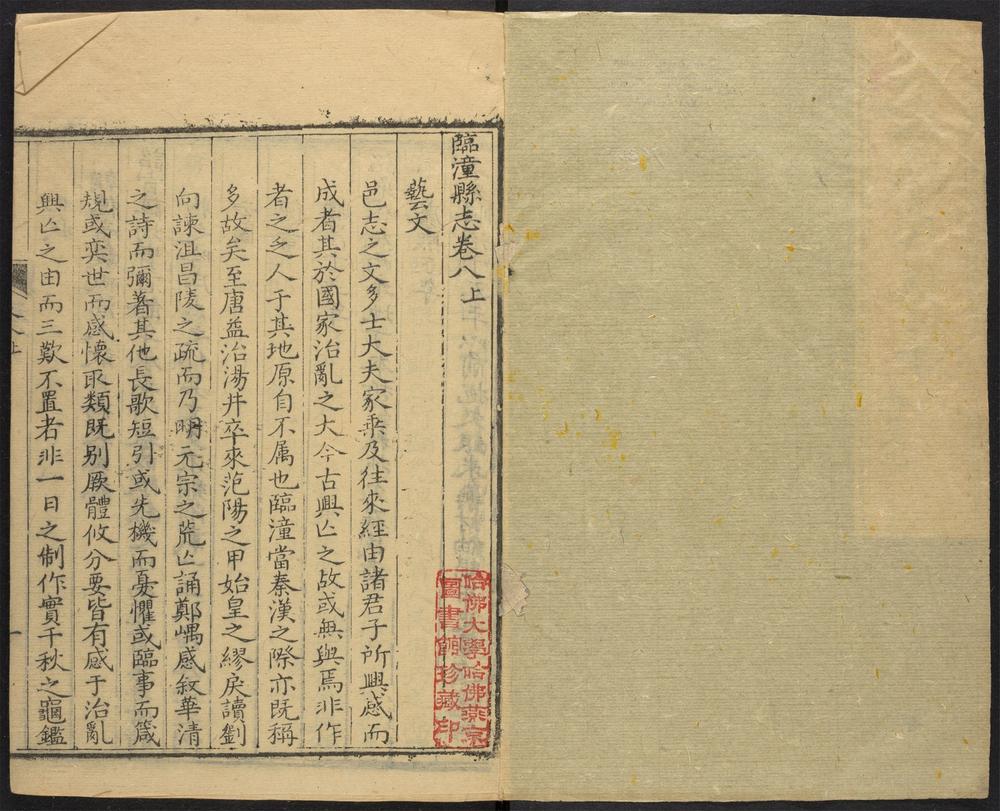 臨潼縣志卷八上
藝文
邑志之文多士大夫家乘及往來經由諸君子所興感而
成者其於國家治亂之大今古興亾之故或無與焉非作
者之乏人于其地原自不属也臨潼當秦漢之際亦既稱
多故矣至唐益治湯井卒來范陽之甲始皇之繆戾讀劉
向諫沮昌陵之疏而乃明元宗之荒亾誦鄭嵎感叙華清
之詩而彌著其他長歌短引或先機而憂懼或臨事而箴
規或奕世而感懷取類既别厥體攸分要皆有感于治亂
興亾之由而三歎不置者非一日之制作實千秋之龜鑑
哈佛大學哈佛燕京
圖書館珍藏印
一